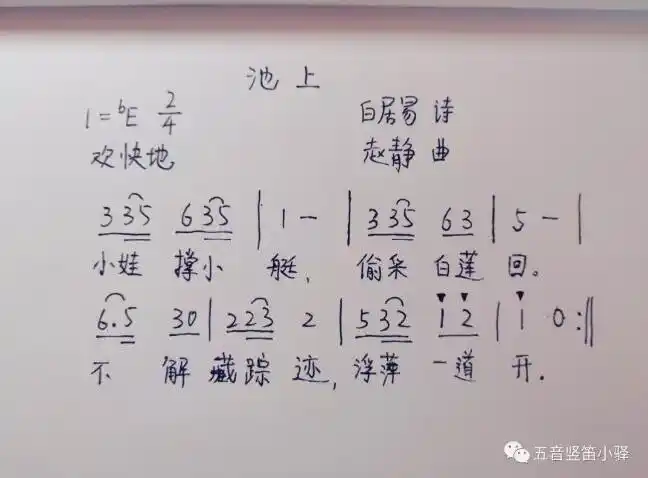 池上
1=♭E 2/4 白居易 诗
欢快地 赵静 曲
3 35 6 35 | 1 - | 3 35 63 | 5 - |
小娃 撑小 艇, 偷采 白莲 回。
6.5 30 | 2 23 2 | 5 32 1 2 | 1 0 :‖
不 解 藏踪 迹, 浮萍 一道 开.
五音竖笛小驿